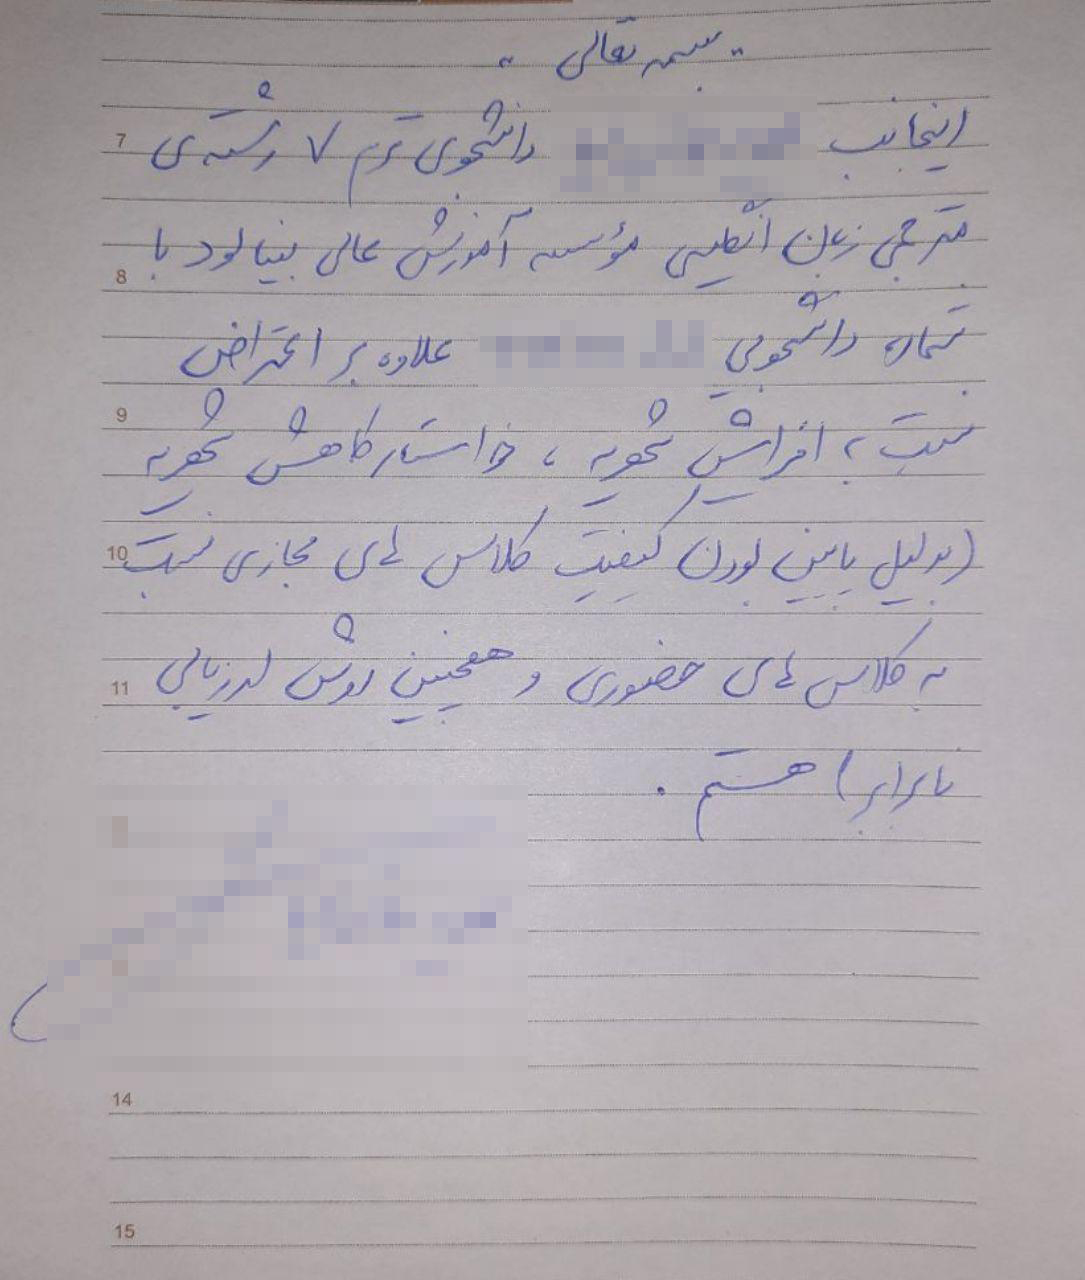 " بسمه تعالی "
اینجانب دانشجوی ترم ۷ رشته ی
7
مترجمی زبان انگلیسی مؤسسه آموزش عالی بینالود با
8
شماره دانشجویی علاوه بر اعتراض
9
نسبت به افزایش شهریه ، خواستار کاهش شهریه
10
(بدلیل پایین بودن کیفیت کلاس های مجازی نسبت
به کلاس های حضوری و همچنین روش ارزیابی
11
نابرابر) هستم .
14
15